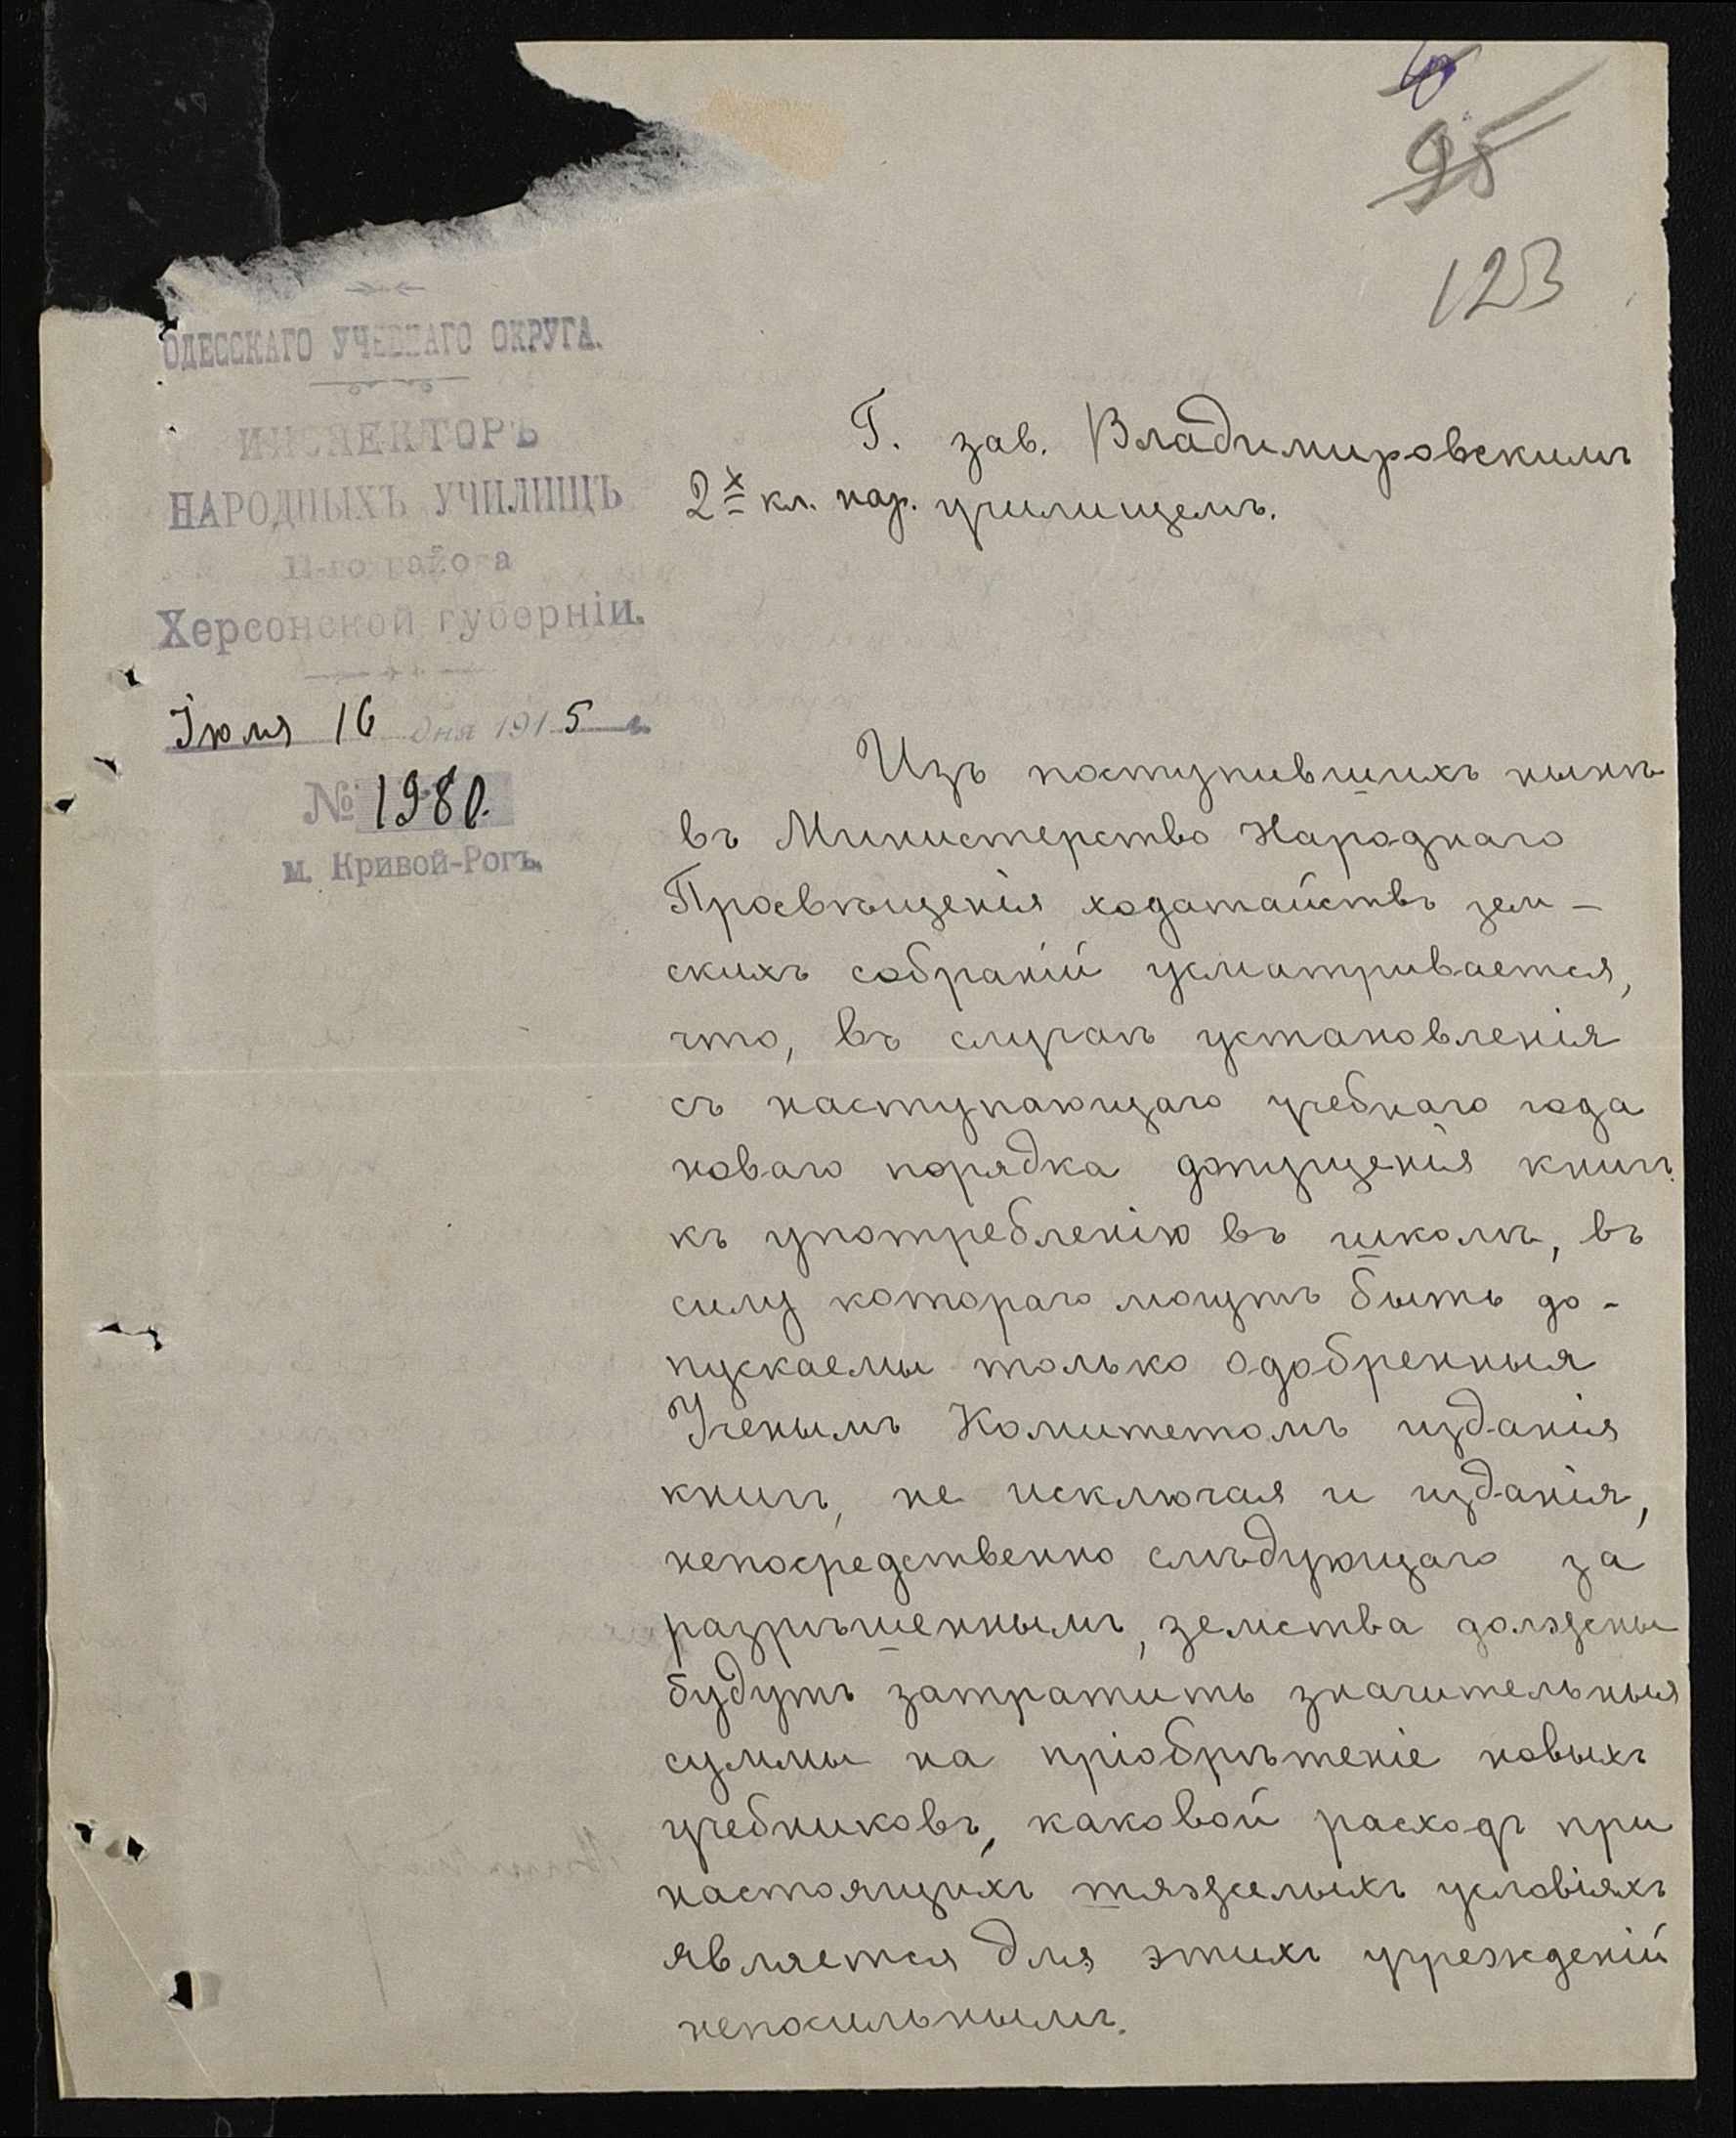 95
123
ОДЕССКАГО УЧЕБНАГО ОКРУГА.
ИНСПЕКТОРЪ
НАРОДНЫХЪ УЧИЛИЩЪ
района
Херсонской губерніи.
Іюля 16 дня 1915 г.
№ 1980.
м. Кривой-Рогъ.
Г. зав. Владимировскимъ
2х кл. нар. училищемъ.
Изъ поступившихъ нынѣ
въ Министерство Народнаго
Просвѣщенія ходатайствъ зем-
скихъ собраній усматривается,
что, въ случаѣ установленія
съ наступающаго учебнаго года
новаго порядка допущенія книгъ
къ употребленію въ школѣ, въ
силу котораго могутъ быть до-
пускаемы только одобренныя
Ученымъ Комитетомъ изданія
книгъ, не исключая и изданія,
непосредственно слѣдующаго за
разрѣшеннымъ, земства должны
будутъ затратить значительныя
суммы на пріобрѣтеніе новыхъ
учебниковъ, каковой расходъ при
настоящихъ тяжелыхъ условіяхъ
является для этихъ учрежденій
непосильнымъ.